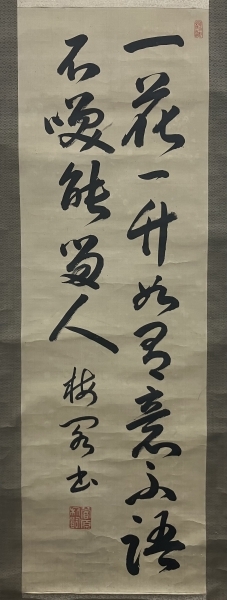 一花一竹如有意不語
不咲能留人
梅書